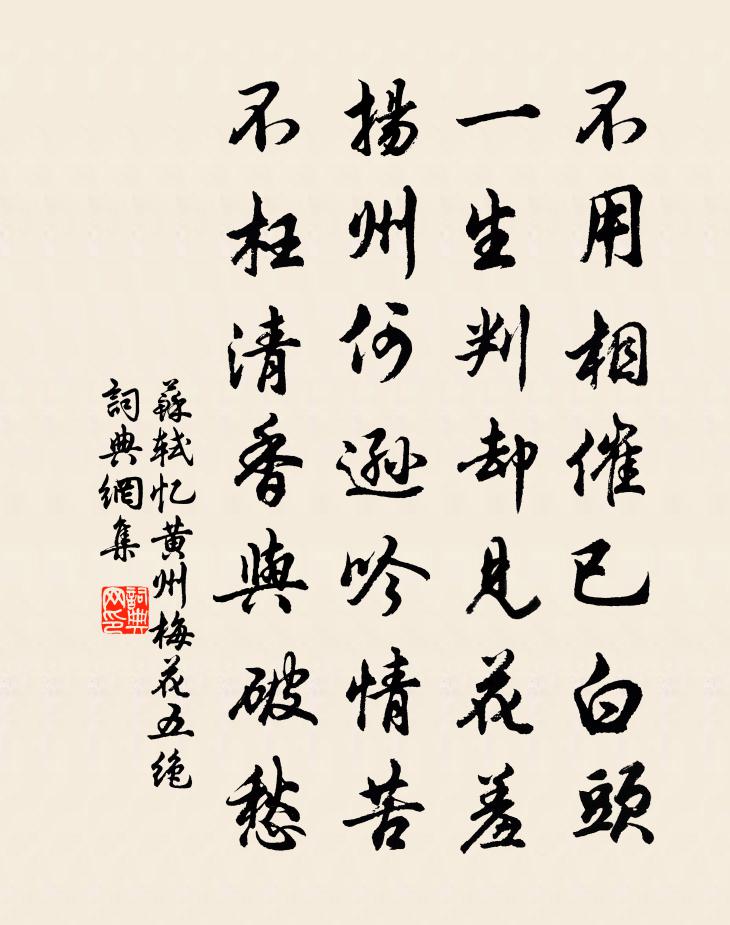 不用相催已白頭
一生判却見花羞
揚州何遜吟情苦
不枉清香與破愁
蘇軾忆黄州梅花五絶
詞典網集
詞典网印